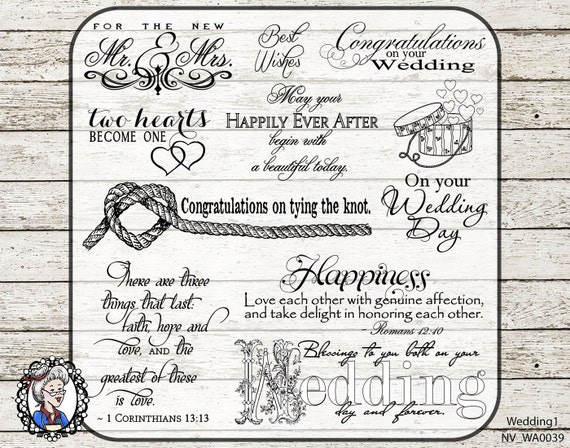 FOR THE NEW
Mr. & Mrs.
Best
Wishes
Congratulations
on your
Wedding
two hearts
BECOME ONE
May your
HAPPILY EVER AFTER
begin with
a beautiful today.
On your
Wedding
Day
Congratulations on tying the knot.
There are three
things that last:
faith, hope and
love, AND the
greatest of these
is love.
~ 1 Corinthians 13:13
Happiness
Love each other with genuine affection,
and take delight in honoring each other.
~ Romans 12:10
Blessings to you both on your
Wedding
day and forever.
Wedding1
NV_WA0039